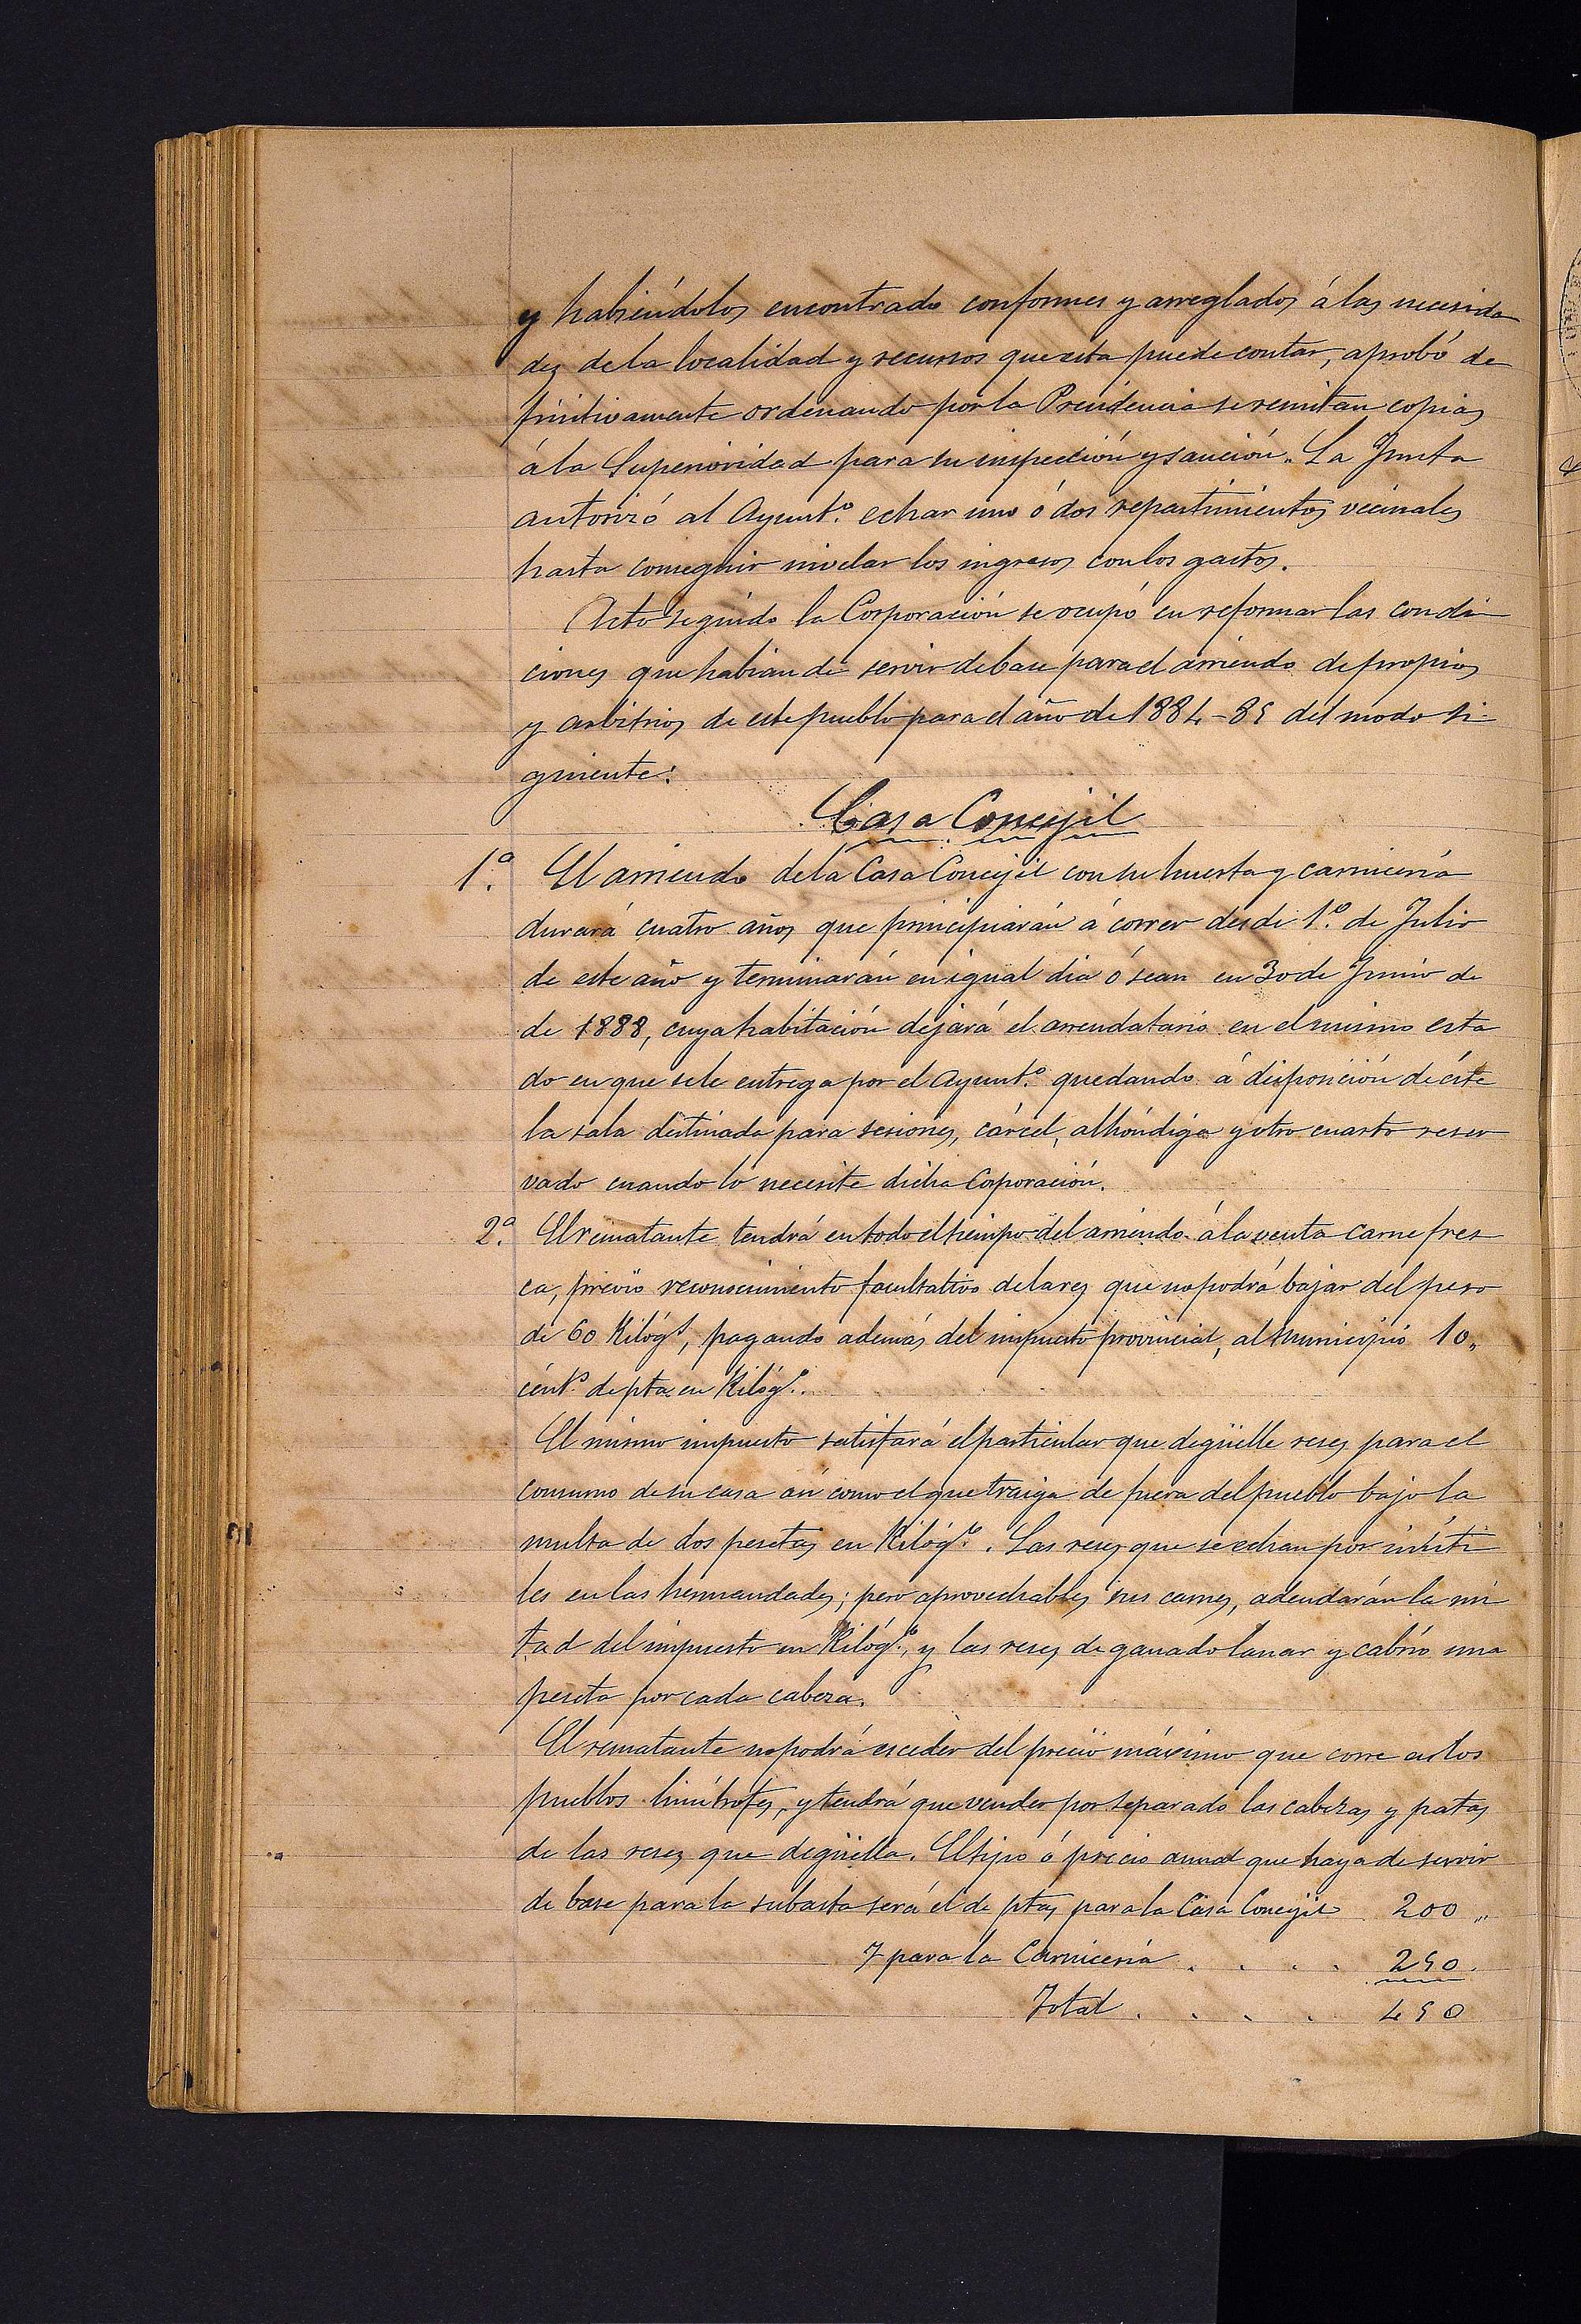 y habiéndolos encontrado conformes y arreglados á las necesida
des de la localidad y recursos que esta puede contar, aprobó de
finitivamente ordenando por la Presidencia se remitan copias
á la Superioridad para su inspección y sanción. La Junta
autorizó al Ayunt.º echar uno ó dos repartimientos vecinales
hasta conseguir nivelar los ingresos con los gastos.
Acto seguido la Corporación se ocupó en reformar las condi
ciones que habian de servir de base para el arriendo de propios
y arbitrios de este pueblo para el año de 1884-85 del modo si-
guiente:
Casa Concejil
1.ª El arriendo de la Casa Concejil con su huerta y carnicería
durará cuatro años que principiarán á correr desde 1.º de Julio
de este año y terminarán en igual dia ó sean en 30 de Junio de
de 1888, cuya habitación dejará el arrendatario en el mismo esta
do en que se le entrega por el Ayunt.º quedando á disposición de éste
la sala destinada para sesiones, cárcel, alhóndiga y otro cuarto reser
vado cuando lo necesite dicha Corporación.
2.ª El rematante tendrá en todo el tiempo del arriendo á la venta carne fres
ca, previo reconocimiento facultativo de la res que no podrá bajar del peso
de 60 Kilógs, pagando además del impuesto provincial, al municipio 10„
cént.s de pta en Kilóg.º.
El mismo impuesto satisfará el particular que degüelle reses para el
consumo de su casa asi como el que traiga de fuera del pueblo bajo la
multa de dos pesetas en Kilóg.º. Las reses que se echan por inúti
les en las hermandades; pero aprovechables sus carnes, adeudarán la mi
tad del impuesto en Kilóg.º, y las reses de ganado lanar y cabrío una
peseta por cada cabeza.
El rematante no podrá esceder del precio máximo que corre en los
pueblos limítrofes, y tendrá que vender por separado las cabezas y patas
de las reses que degüella. El tipo ó precio anual que haya de servir
de base para la subasta será el de ptas para la Casa Concejil 200 „
Y para la Carnicería . . . . 250.
Total . . . . 450